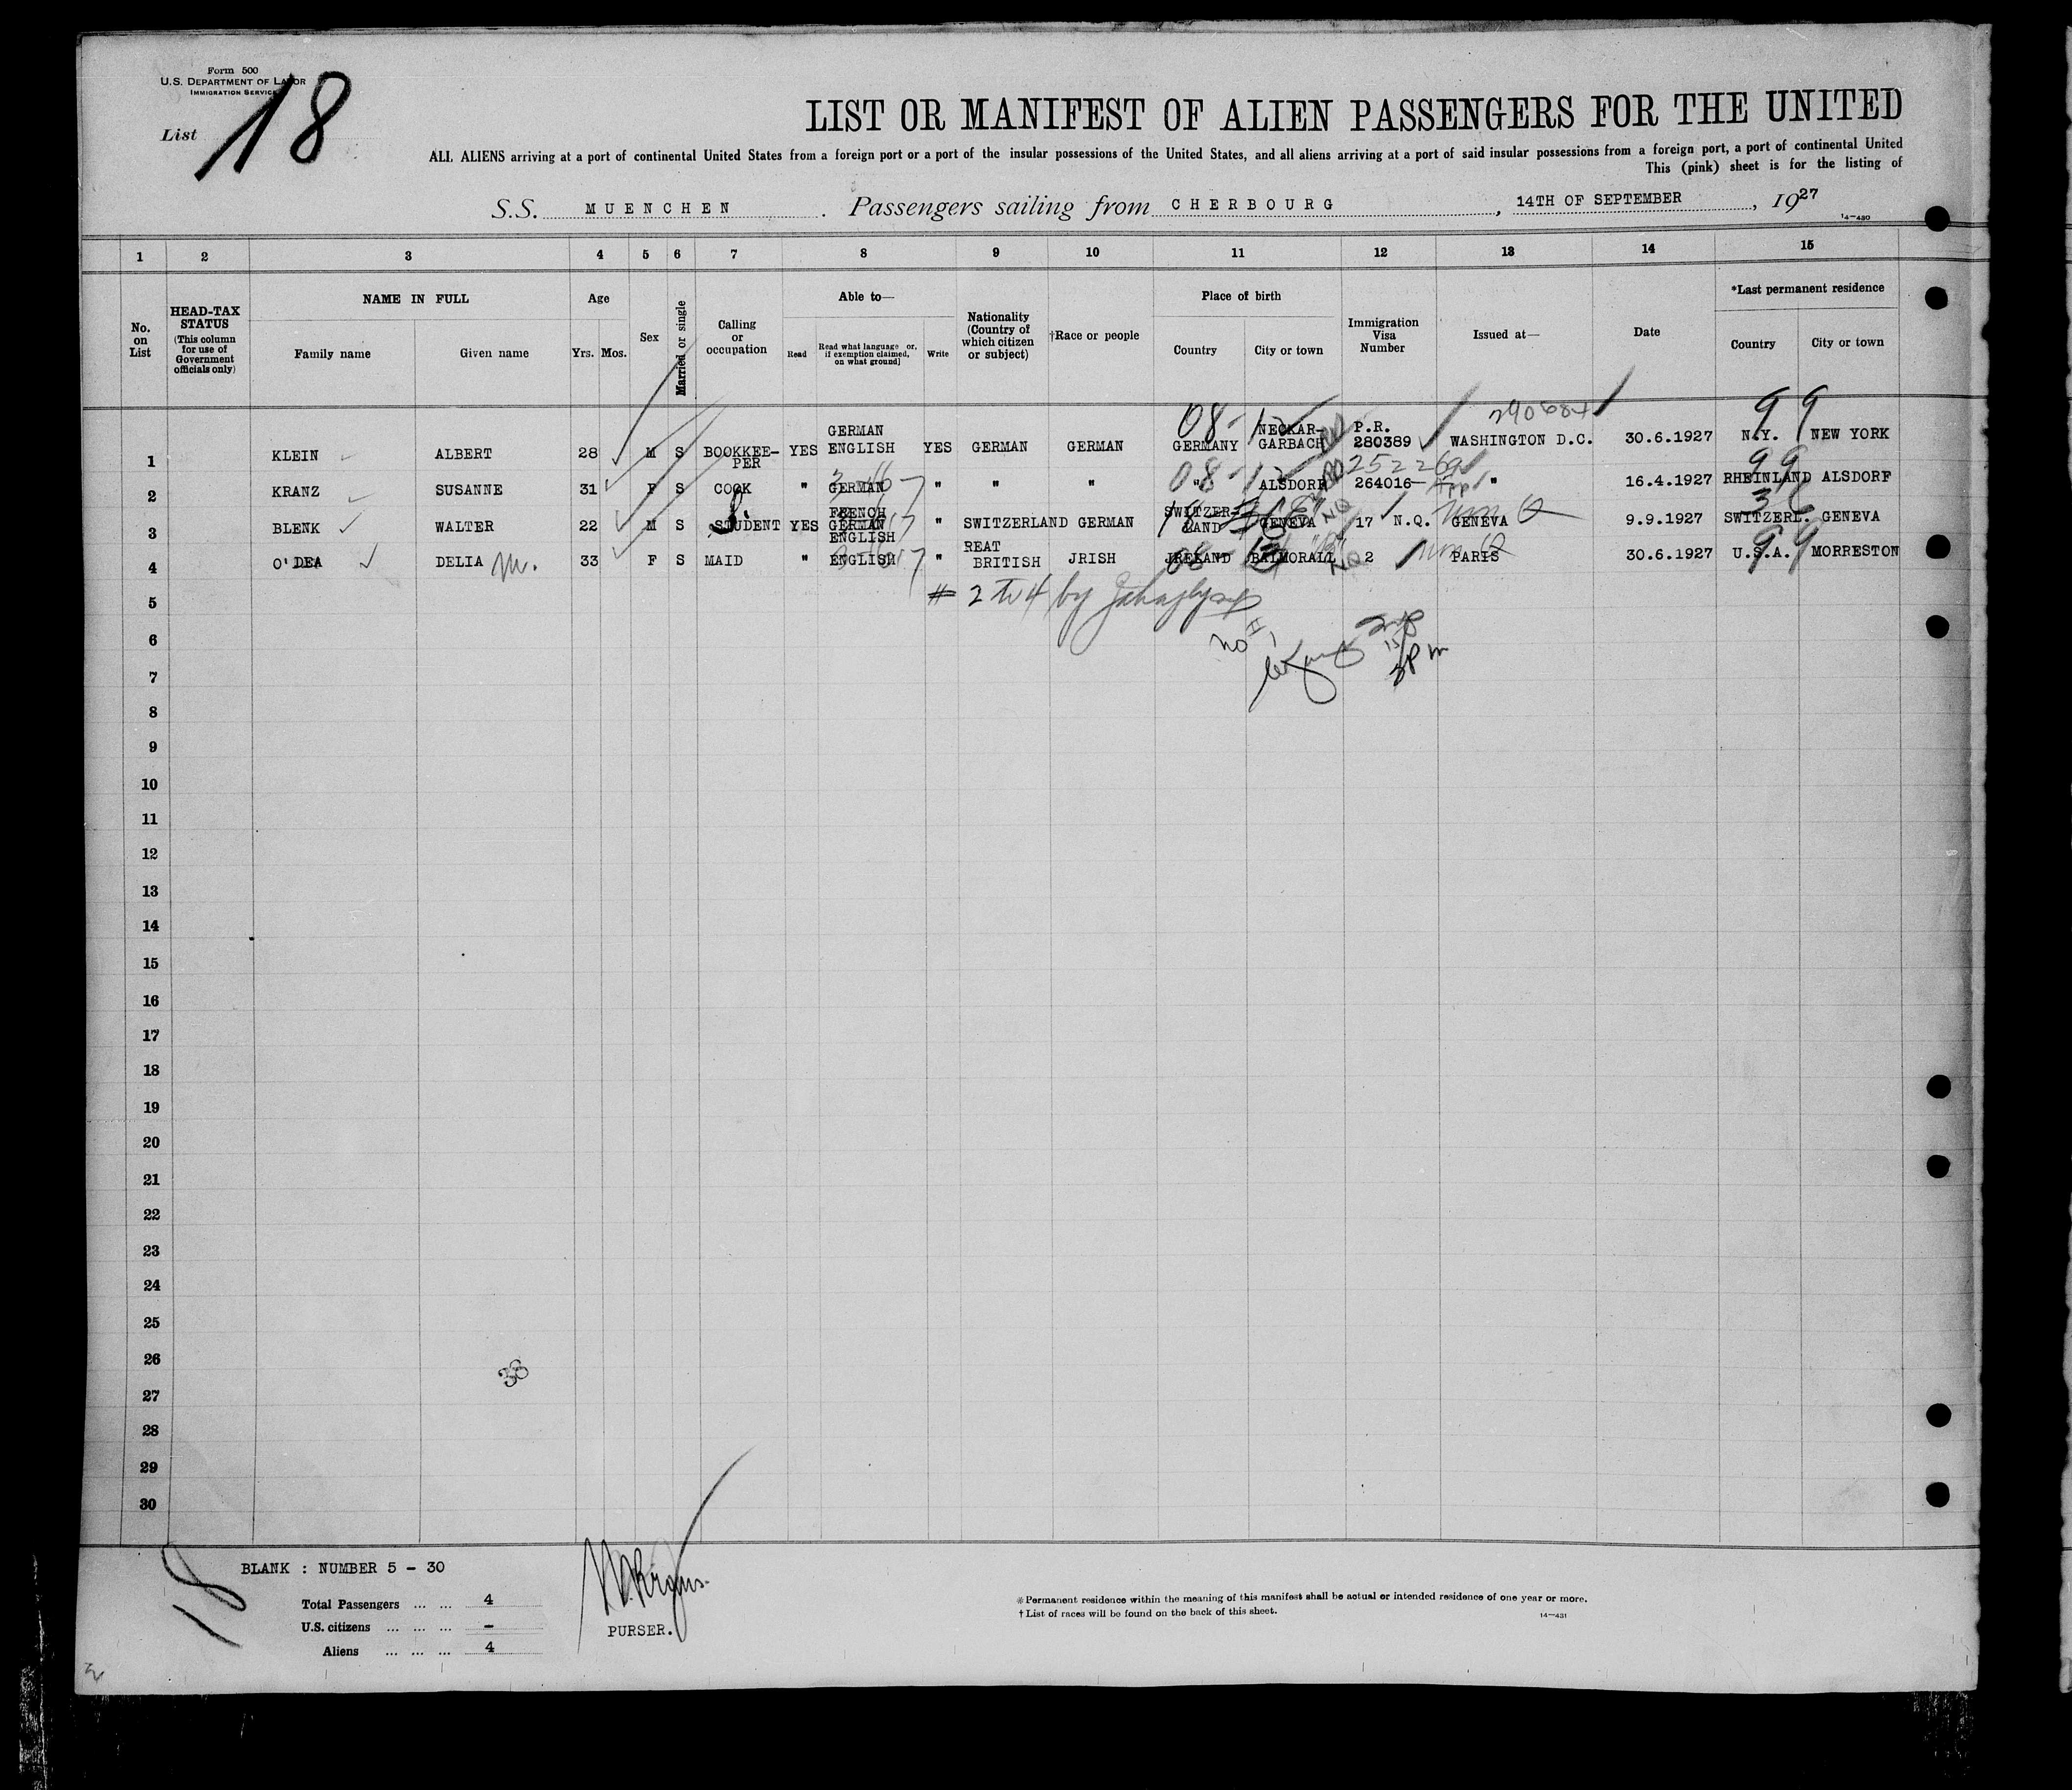 Form 500
U.S. DEPARTMENT OF LABOR
IMMIGRATION SERVICE
List 18
LIST OR MANIFEST OF ALIEN PASSENGERS FOR THE UNITED
ALL ALIENS arriving at a port of continental United States from a foreign port or a port of the insular possessions of the United States, and all aliens arriving at a port of said insular possessions from a foreign port, a port of continental United
This (pink) sheet is for the listing of
S.S. MUENCHEN . Passengers sailing from CHERBOURG , 14TH OF SEPTEMBER , 1927
14—430
1 2 3 4 5 6 7 8 9 10 11 12 13 14 15
No. on List
HEAD-TAX STATUS (This column for use of Government officials only)
NAME IN FULL
Family name Given name
Age
Yrs. Mos.
Sex
Married or single
Calling or occupation
Able to—
Read
Read what language or, if exemption claimed, on what ground]
Write
Nationality (Country of which citizen or subject)
†Race or people
Place of birth
Country City or town
Immigration Visa Number
Issued at—
Date
*Last permanent residence
Country City or town
290684
1 KLEIN ALBERT 28 M S BOOKKEE-PER YES GERMAN ENGLISH YES GERMAN GERMAN 08- GERMANY NECKAR-GARBACH P.R. 280389 WASHINGTON D.C. 30.6.1927 N.Y. NEW YORK 99
2 KRANZ SUSANNE 31 F S COOK " GERMAN " " " 08- " ALSDORF 252269 264016— App " 16.4.1927 RHEINLAND ALSDORF 99
3 BLENK WALTER 22 M S STUDENT YES FRENCH GERMAN ENGLISH " SWITZERLAND GERMAN SWITZER-LAND GENEVA NQ 17 N.Q. GENEVA Non Q 9.9.1927 SWITZERL. GENEVA
4 O'DEA DELIA M. 33 F S MAID " ENGLISH " REAT BRITISH JRISH JRELAND BALMORALL NQ 2 PARIS Non Q 30.6.1927 U.S.A. MORRESTON 99
5 # 2 to 4 by
6 no 1
7 3 PM
8
9
10
11
12
13
14
15
16
17
18
19
20
21
22
23
24
25
26
27
28
29
30
18
BLANK : NUMBER 5 - 30
Total Passengers ... ... 4
U.S. citizens ... ... ... -
Aliens ... ... ... 4
PURSER.
*Permanent residence within the meaning of this manifest shall be actual or intended residence of one year or more.
†List of races will be found on the back of this sheet.
14—431